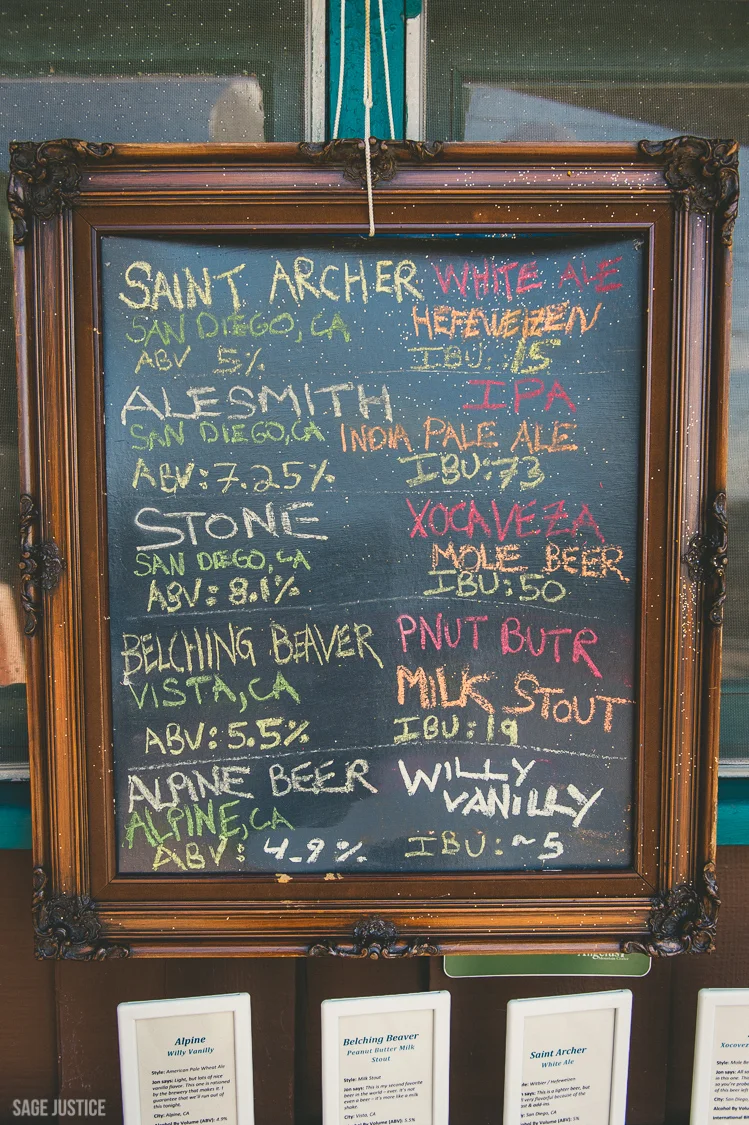 SAINT ARCHER WHITE ALE
SAN DIEGO, CA HEFEWEIZEN
ABV 5% IBU: 15
ALESMITH IPA
SAN DIEGO, CA INDIA PALE ALE
ABV: 7.25% IBU: 73
STONE XOCAVEZA
SAN DIEGO, CA MOLE BEER
ABV: 8.1% IBU: 50
BELCHING BEAVER PNUT BUTR
VISTA, CA MILK STOUT
ABV: 5.5% IBU: 19
ALPINE BEER WILLY
VANILLY
ALPINE, CA
ABV: 4.9% IBU: ~5
Alpine
Willy Vanilly
Style: American Pale Wheat Ale
Jon says: Light, but lots of nice
vanilla flavor. This one is rationed
by the brewery that makes it. I
guarantee that we'll run out of
this tonight.
City: Alpine, CA
Alcohol By Volume (ABV): 4.9%
Belching Beaver
Peanut Butter Milk
Stout
Style: Milk Stout
Jon says: This is my second favorite
beer in the world - ever. It's not
even a beer - it's more like a milk
shake.
City: Vista, CA
Alcohol By Volume (ABV): 5.5%
Saint Archer
White Ale
Witbier / Hefeweizen
says: This is a lighter beer, but
very flavorful because of the
add-ins.
San Diego, CA
By Volume (ABV): 5%
Xocavez
Mole Be
SAGE JUSTICE